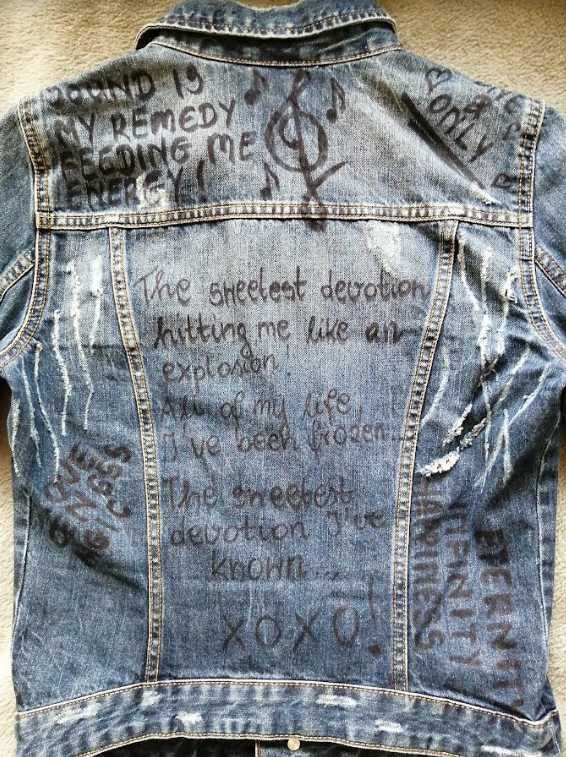 SOUND IS
MY REMEDY
FEEDING ME
ENERGY!
ONLY
The sweetest devotion
hitting me like an
explosion!
All of my life,
I've been frozen...
The sweetest
devotion I've
known...
XOXO!
ETERNITY
INFINITY
HAPINESS